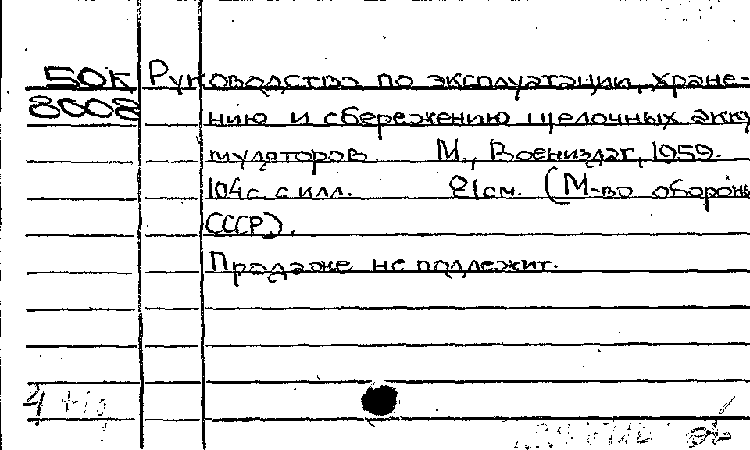 50К Руководство по эксплуатации, хране-
8008 нию и сбережению щелочных акку
муляторов М., Воениздат, 1959.
104с. с илл. 21см. (М-во оборон
СССР).
Продаже не подлежит.
4